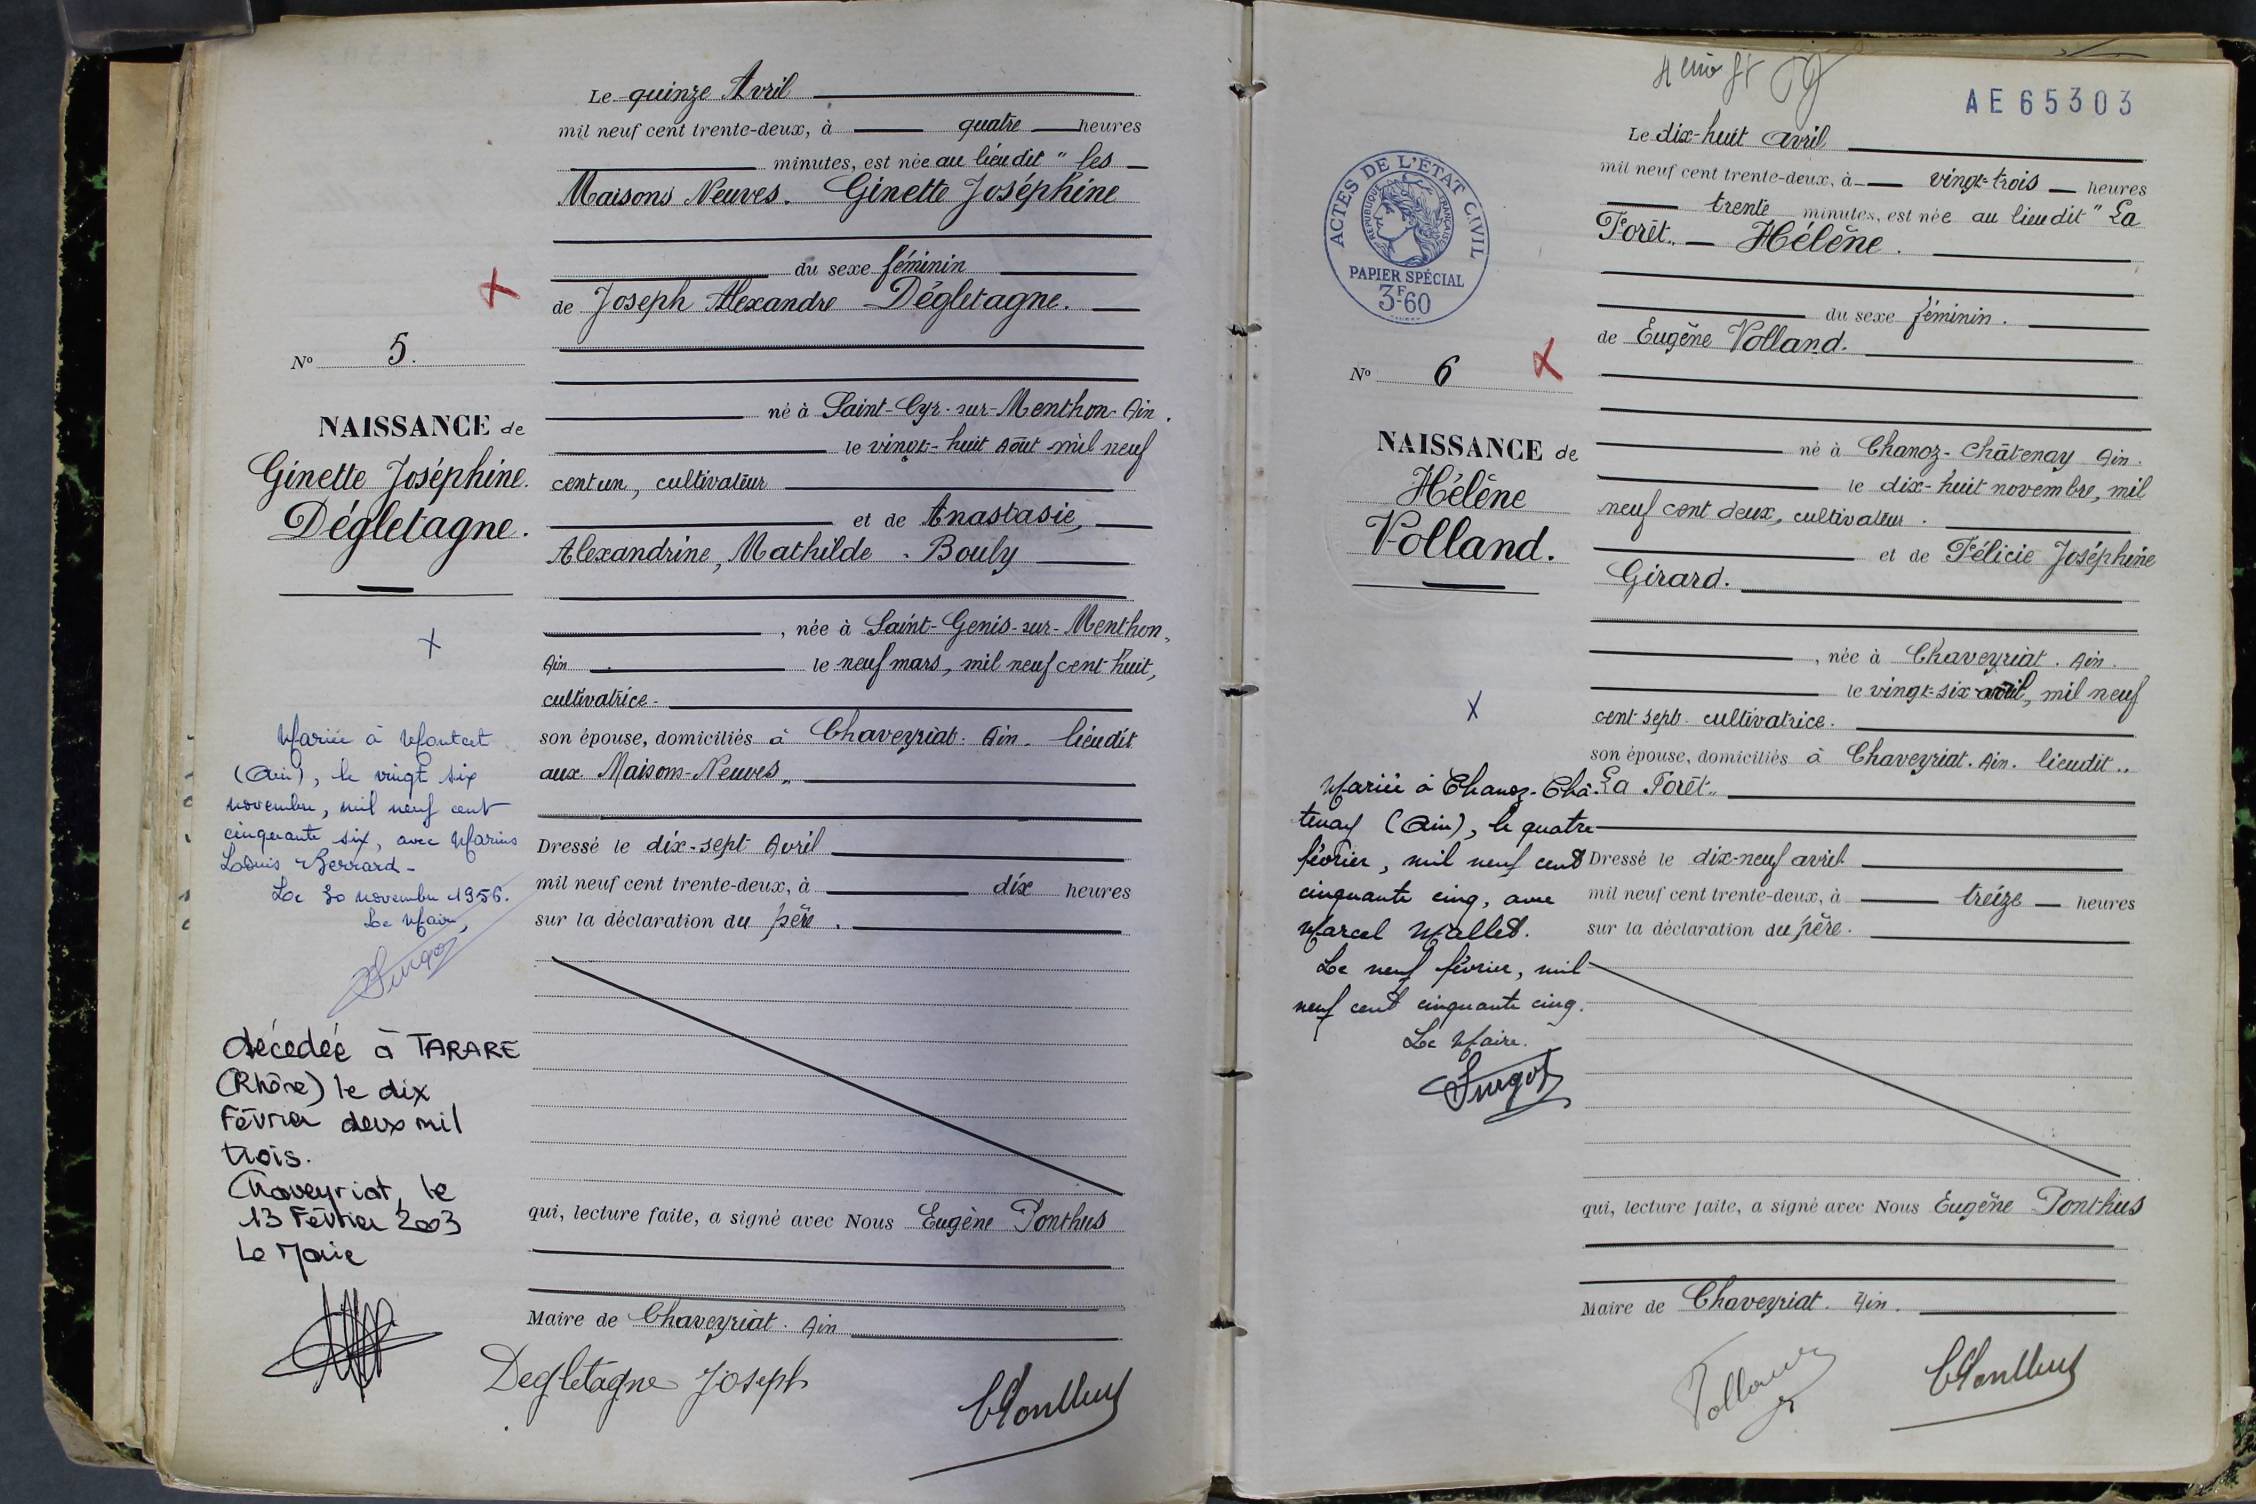 Le quinze Avril
mil neuf cent trente-deux, à quatre heures
minutes, est née au lieu dit "les
Maisons Neuves. Ginette Joséphine
du sexe féminin
de Joseph Alexandre Dégletagne.
né à Saint-Cyr-sur-Menthon-Ain.
le vingt-huit Août mil neuf
cent un, cultivateur
et de Anastasie,
Alexandrine, Mathilde. Bouly
, née à Saint-Genis-sur-Menthon,
Ain. le neuf mars, mil neuf cent huit,
cultivatrice-
son épouse, domiciliés à Chaveyriat. Ain. lieudit
aux Maisons-Neuves"
Dressé le dix-sept Avril
mil neuf cent trente-deux, à dix heures
sur la déclaration du père.
qui, lecture faite, a signé avec Nous Eugène Ponthus
Maire de Chaveyriat. Ain
Degletagne Joseph
No 5.
NAISSANCE de
Ginette Joséphine.
Dégletagne.
X
Mariée à Montcet
(Ain), le vingt six
novembre, mil neuf cent
cinquante six, avec Marius
Louis
Le 30 novembre 1956.
Le Maire,
décedée à TARARE
(Rhône) le dix
Février deux mil
trois.
Chaveyriat, le
13 Février 2003
Le Maire
AE65303
ACTES DE L'ÉTAT CIVIL
RÉPUBLIQUE FRANÇAISE
PAPIER SPÉCIAL
3F.60
Le dix-huit avril
mil neuf cent trente-deux, à vingt-trois heures
trente minutes, est née au lieu dit "La
Forêt" Hélène.
du sexe féminin.
de Eugène Volland.
né à Chanoz-Châtenay Ain.
le dix-huit novembre, mil
neuf cent deux, cultivateur.
et de Félicie Joséphine
Girard.
, née à Chaveyriat. Ain.
le vingt-six avril, mil neuf
cent sept. cultivatrice.
son épouse, domiciliés à Chaveyriat. Ain. lieudit "
La Forêt"
Dressé le dix-neuf avril
mil neuf cent trente-deux, à treize heures
sur la déclaration du père.
qui, lecture faite, a signé avec Nous Eugène Ponthus
Maire de Chaveyriat. Ain.
No 6
NAISSANCE de
Hélène
Volland.
X
Mariée à Chanoz-Châ-
tenay (Ain), le quatre
février, mil neuf cent
cinquante cinq, avec
Marcel Mallet.
Le neuf février, mil
neuf cent cinquante cinq.
Le Maire.